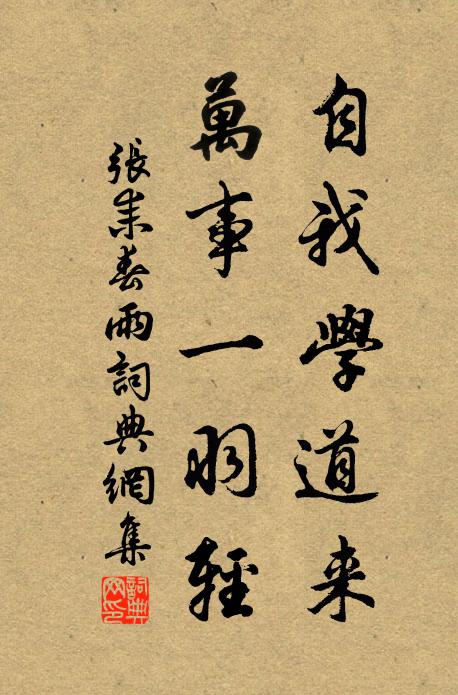 自我學道来
萬事一羽輕
張耒春雨詞典網集
詞典網印